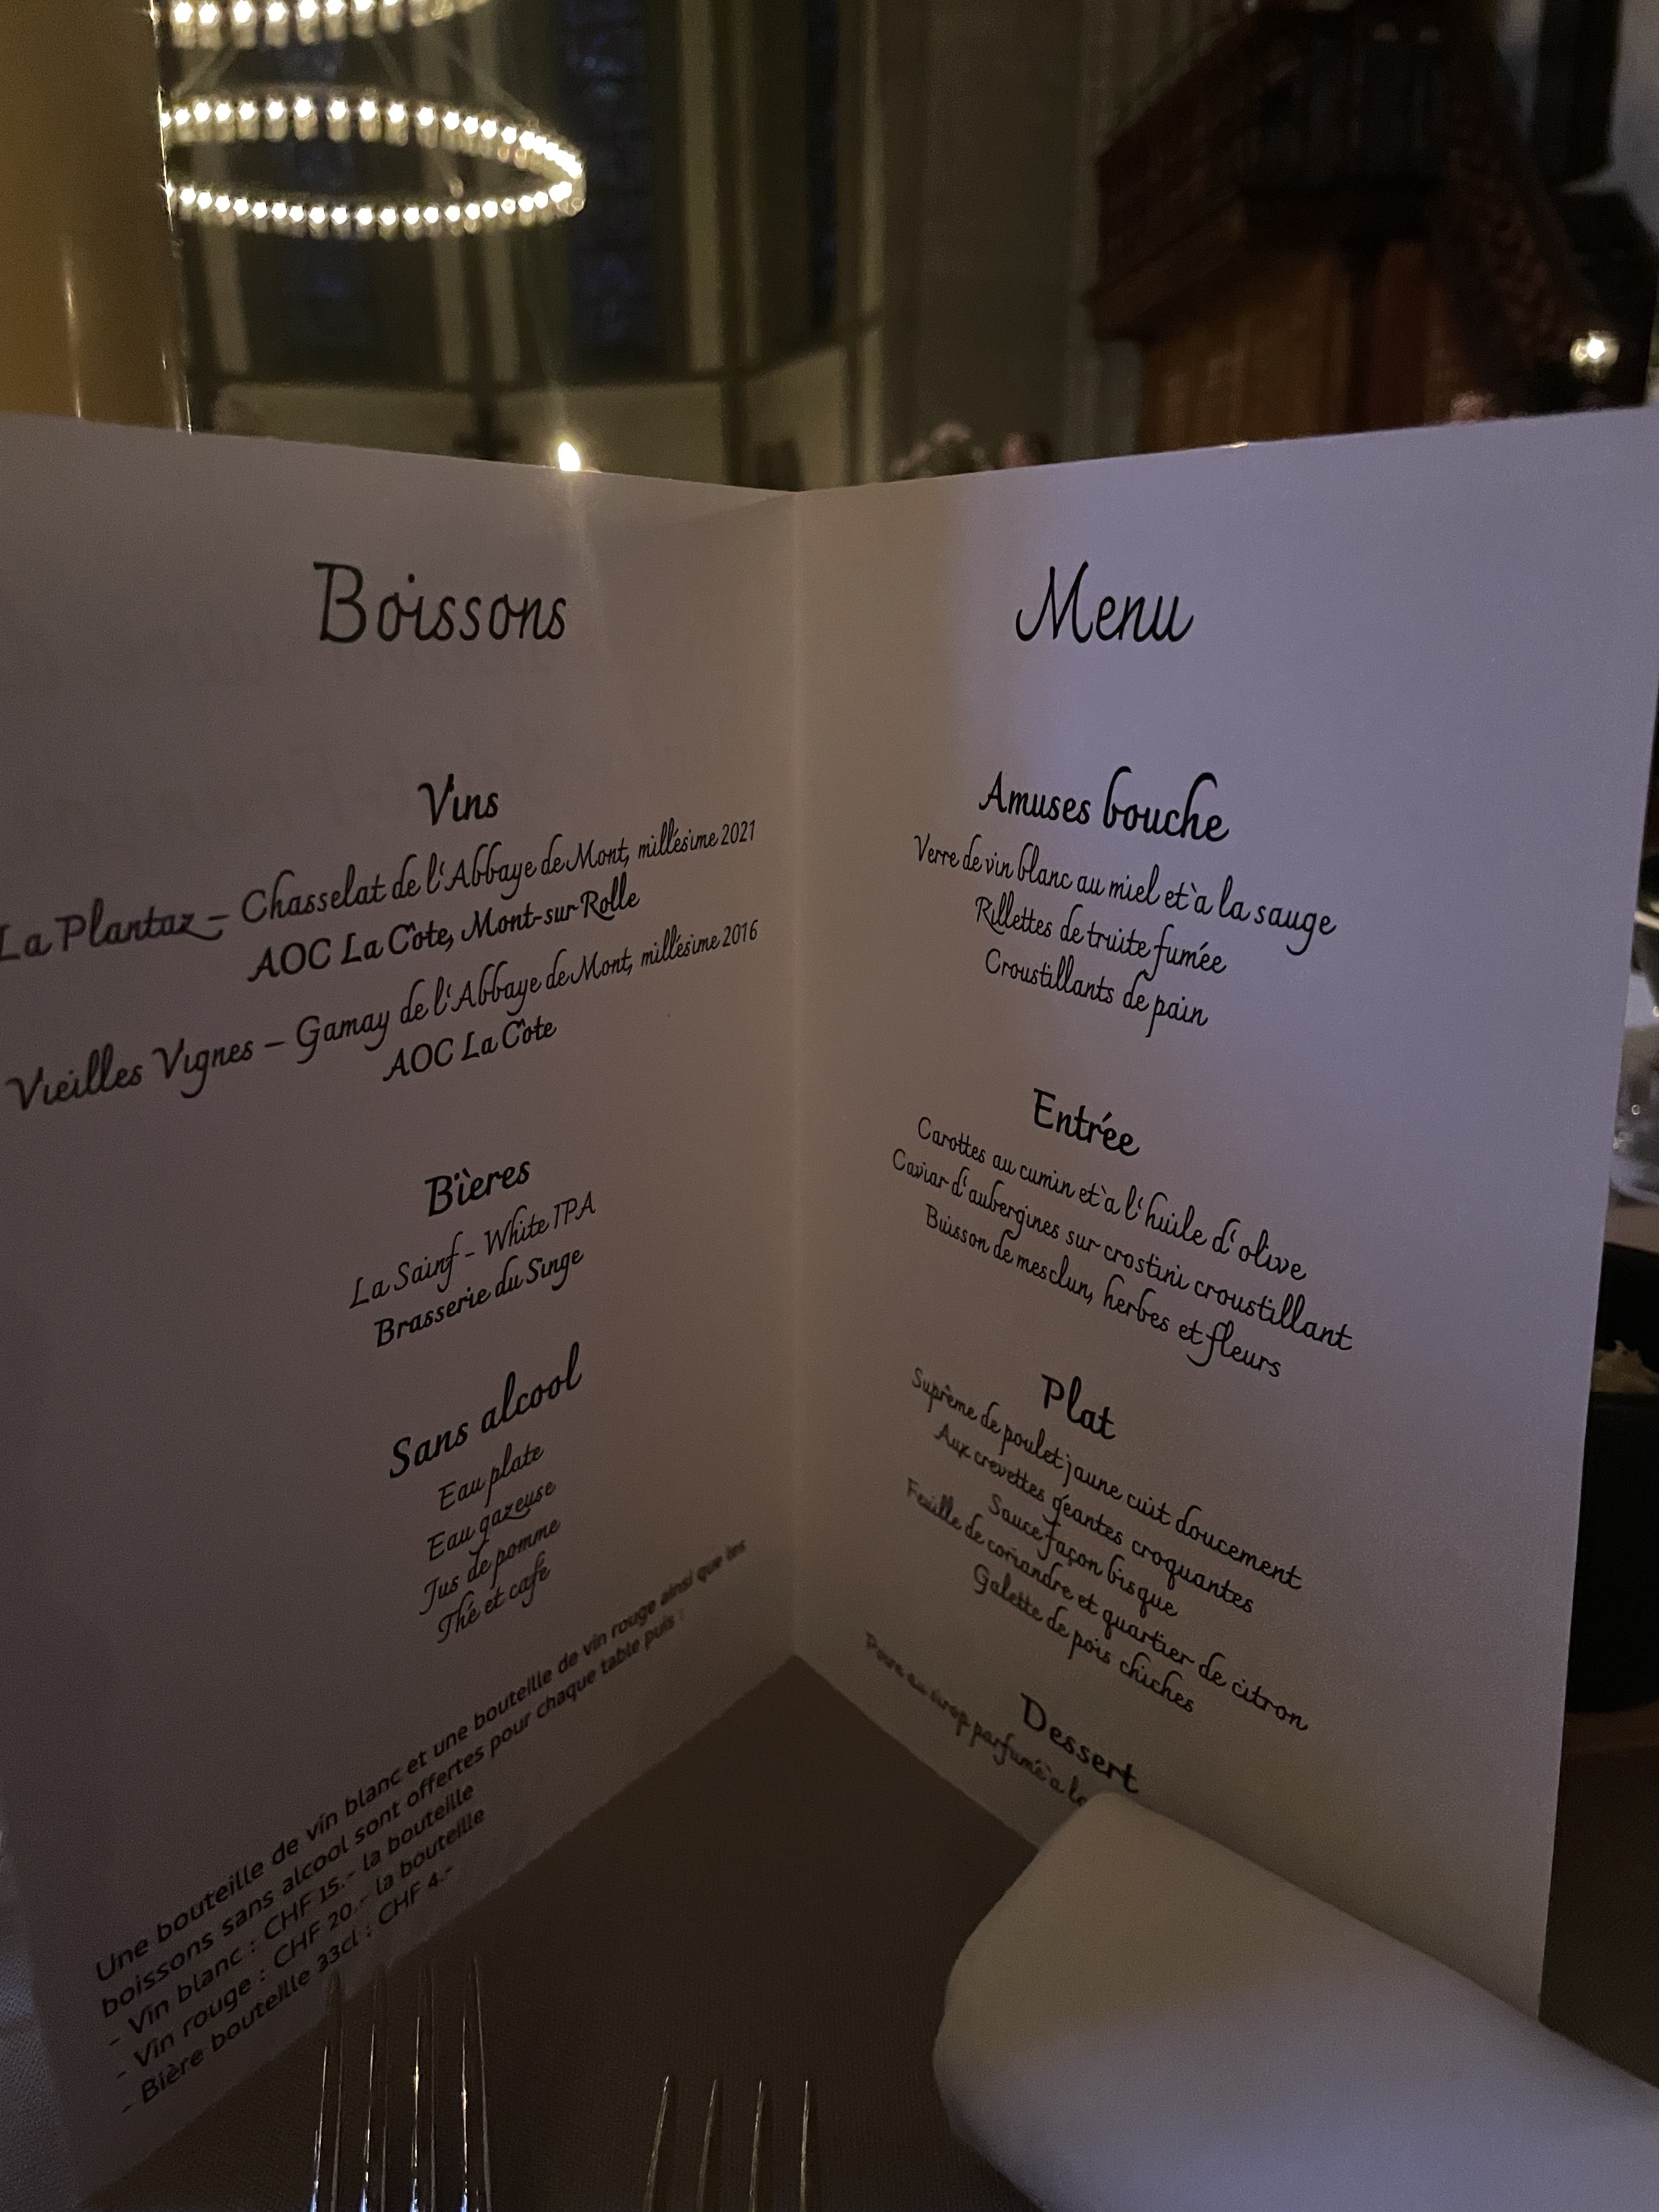 Boissons
Vins
La Plantaz – Chasselat de l'Abbaye de Mont, millésime 2021
AOC La Côte, Mont-sur Rolle
Vieilles Vignes – Gamay de l'Abbaye de Mont, millésime 2016
AOC La Côte
Bières
La Sainf - White IPA
Brasserie du Singe
Sans alcool
Eau plate
Eau gazeuse
Jus de pomme
Thé et café
Une bouteille de vin blanc et une bouteille de vin rouge ainsi que les
boissons sans alcool sont offertes pour chaque table puis :
- Vin blanc : CHF 15.- la bouteille
- Vin rouge : CHF 20.- la bouteille
- Bière bouteille 33cl : CHF 4.-
Menu
Amuses bouche
Verre de vin blanc au miel et à la sauge
Rillettes de truite fumée
Croustillants de pain
Entrée
Carottes au cumin et à l'huile d'olive
Caviar d'aubergines sur crostini croustillant
Buisson de mesclun, herbes et fleurs
Plat
Suprême de poulet jaune cuit doucement
Aux crevettes géantes croquantes
Sauce façon bisque
Feuille de coriandre et quartier de citron
Galette de pois chiches
Dessert
Poire au sirop parfumé à la